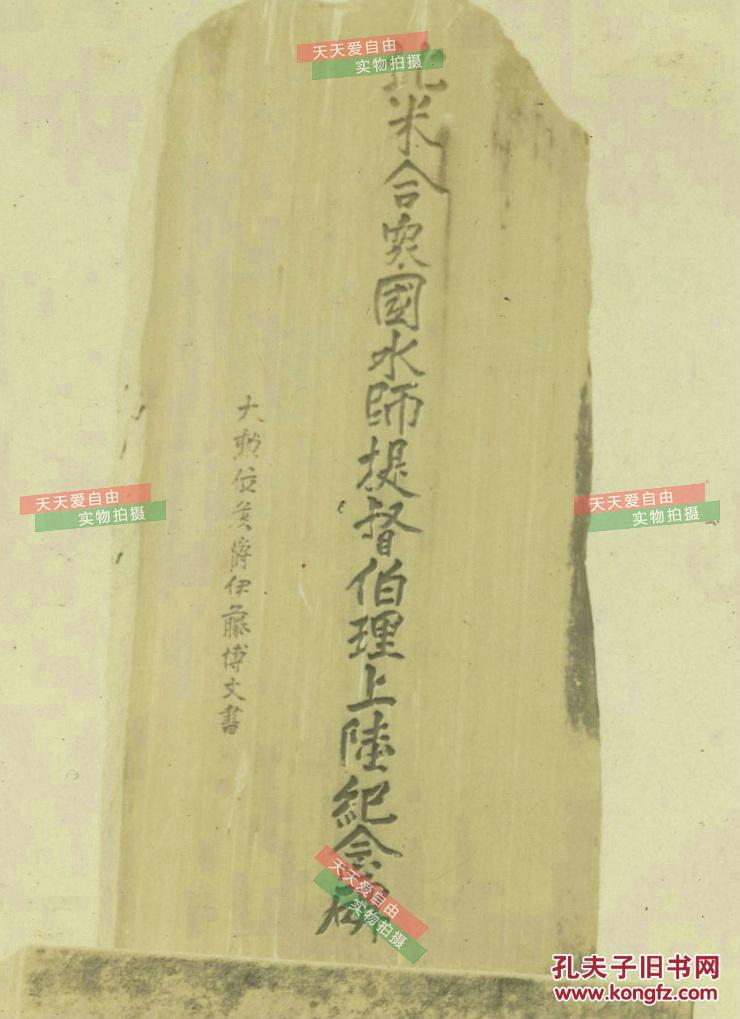 北米合衆國水師提督伯理上陸紀念碑
大勲位侯爵伊藤博文書
天天爱自由
实物拍摄
天天爱自由
实物拍摄
天天爱自由
实物拍摄
天天爱自由
实物拍摄
孔夫子旧书网
www.kongfz.com